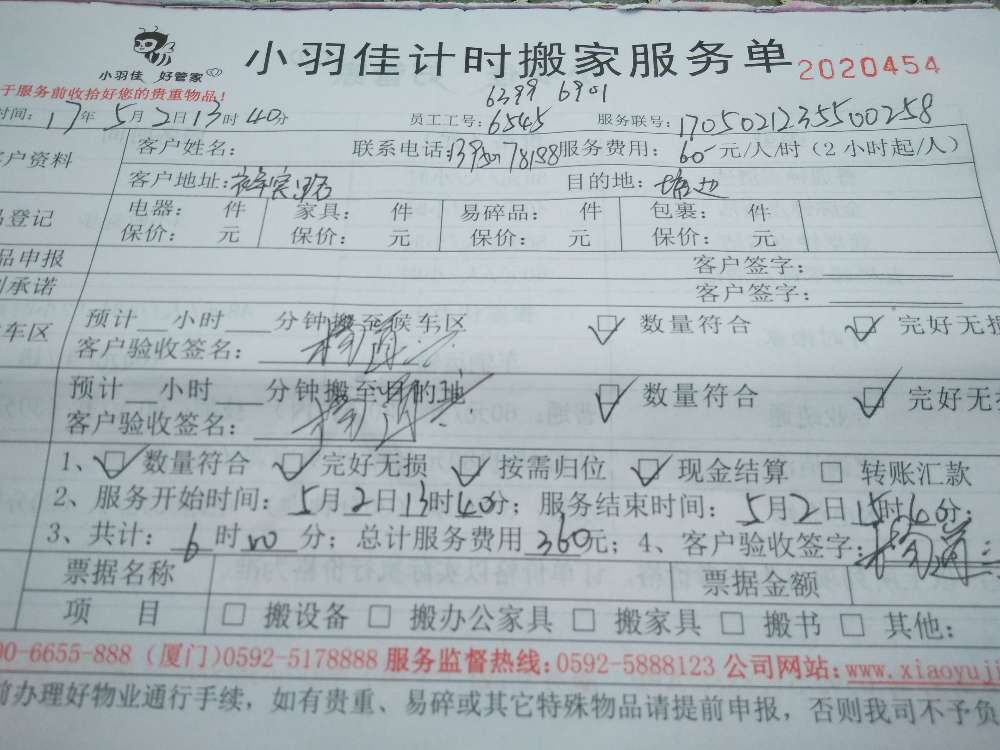 小羽佳 好管家
小羽佳计时搬家服务单 2020454
于服务前收拾好您的贵重物品!
6399 6901
时间: 17年5月2日13时40分 员工工号: 6545 服务联号: 17050212355500258
客户资料 客户姓名: 联系电话: 服务费用: 60元/人/时(2小时起/人)
客户地址: 目的地:
品登记 电器: 件 家具: 件 易碎品: 件 包裹: 件
保价: 元 保价: 元 保价: 元 保价: 元
品申报 客户签字:
别承诺 客户签字:
车区 预计 小时 分钟搬至候车区 ☑ 数量符合 ☑ 完好无损
客户验收签名:
预计 小时 分钟搬至目的地 ☑ 数量符合 ☑ 完好无损
客户验收签名:
1、☑ 数量符合 ☑ 完好无损 ☑ 按需归位 ☑ 现金结算 □ 转账汇款
2、服务开始时间: 5月2日13时40分; 服务结束时间: 5月2日15时40分;
3、共计: 6时00分; 总计服务费用360元; 4、客户验收签字:
票据名称 票据金额
项 目 □ 搬设备 □ 搬办公家具 □ 搬家具 □ 搬书 □ 其他:
00-6655-888 (厦门)0592-5178888 服务监督热线:0592-5888123 公司网站:www.xiaoyuji
前办理好物业通行手续, 如有贵重、易碎或其它特殊物品请提前申报, 否则我司不予负